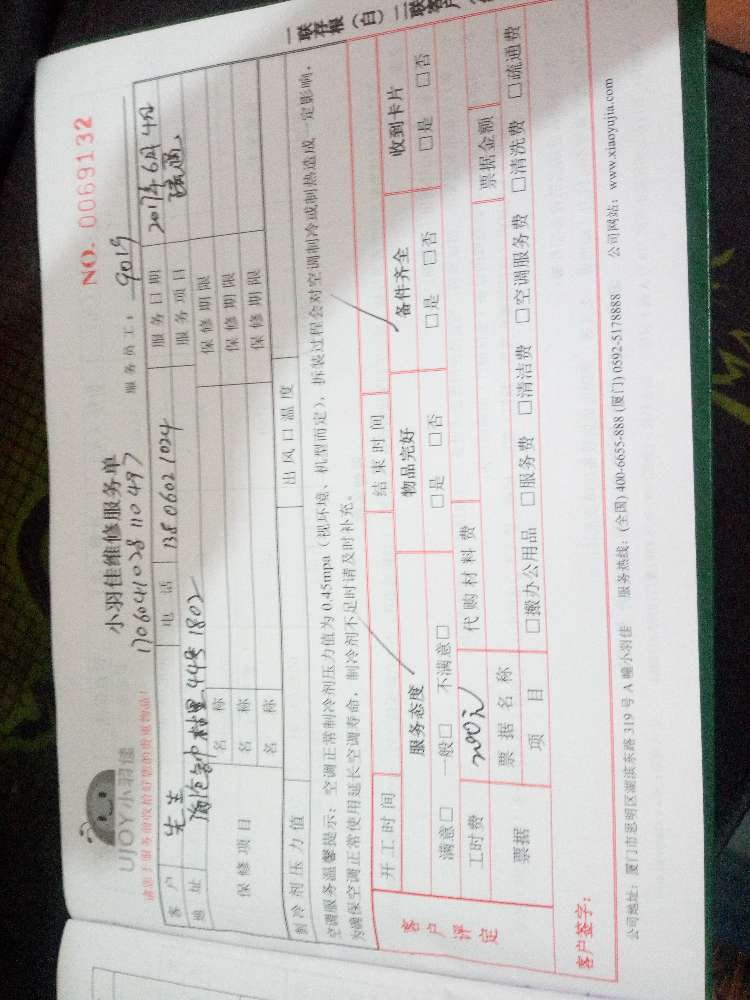 UJOY小羽佳
小羽佳维修服务单
NO. 0069132
请您于服务前收拾好您的贵重物品!
17060410281 10497
服务员工: 9019
客户 先生 电话 13806021024 服务日期 2017年6月4日
地址 44号1802 服务项目
保修项目 名称 保修期限
名称 保修期限
名称 保修期限
制冷剂压力值 出风口温度
空调服务温馨提示:空调正常制冷剂压力值为0.45mpa(视环境、机型而定),拆装过程会对空调制冷或制热造成一定影响,
为确保空调正常使用延长空调寿命,制冷剂不足时请及时补充。
开工时间 结束时间
客户评定 服务态度 物品完好 备件齐全 收到卡片
满意□ 一般□ 不满意□ □是 □否 □是 □否 □是 □否
工时费 200元 代购材料费
票据 票据名称 票据金额
项目 □搬办公用品 □服务费 □清洁费 □空调服务费 □清洗费 □疏通费
客户签字:
公司地址:厦门市思明区湖滨东路319号A幢小羽佳 服务热线:(全国)400-6655-888 (厦门)0592-5178888 公司网站:www.xiaoyujia.com
一联存根(白)二联客户